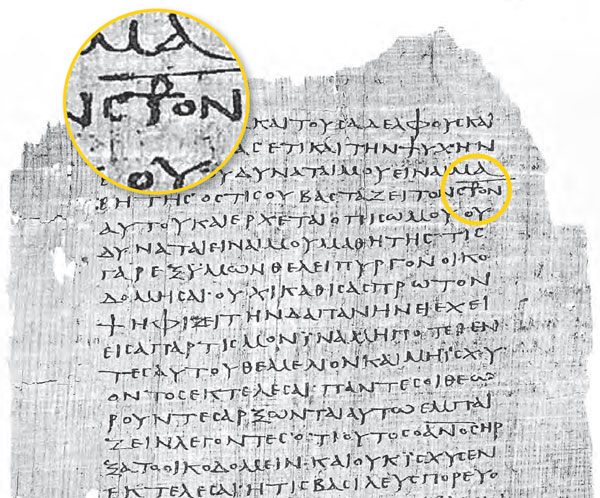 ΜΑ
ΝϹ⳨ΟΝ
ΟΥ
ΚΑΙΤΟΥϹΑΔΕΛΦΟΥϹΚΑΙ
ΑϹΕΤΙΚΑΙΤΗΝΨΥΧΗΝ
ΥΔΥΝΑΤΑΙΜΟΥΕΙΝΑΙΜΑ
ΘΗΤΗϹΟϹΤΙϹΟΥΒΑϹΤΑΖΕΙΤΟΝϹ⳨ΟΝ
ΑΥΤΟΥΚΑΙΕΡΧΕΤΑΙΟΠΙϹΩΜΟΥΟΥ
ΔΥΝΑΤΑΙΕΙΝΑΙΜΟΥΜΑΘΗΤΗϹ·ΤΙϹ
ΓΑΡΕΞΥΜΩΝΘΕΛΕΙΠΥΡΓΟΝΟΙΚΟ
ΔΟΜΗϹΑΙ·ΟΥΧΙΚΑΘΙϹΑϹΠΡΩΤΟΝ
ΨΗΦΙΖΕΙΤΗΝΔΑΠΑΝΗΝΕΙΕΧΕΙ
ΕΙϹΑΠΑΡΤΙϹΜΟΝΙΝΑΜΗΠΟΤΕΘΕΝ
ΤΕϹΑΥΤΟΥΘΕΜΕΛΙΟΝΚΑΙΜΗΙϹΧΥ
ΟΝΤΟϹΕΚΤΕΛΕϹΑΙ·ΠΑΝΤΕϹΟΙΘΕΩ
ΡΟΥΝΤΕϹΑΡΞΩΝΤΑΙΑΥΤΩΕΜΠΑΙ
ΖΕΙΝΛΕΓΟΝΤΕϹΟΤΙΟΥΤΟϹΟΑΝΟϹΗΡ
ΞΑΤΟΟΙΚΟΔΟΜΕΙΝ·ΚΑΙΟΥΚΙϹΧΥϹΕΝ
ΕΚΤΕΛΕϹΑΙ·ΗΤΙϹΒΑϹΙΛΕΥϹΠΟΡΕΥΟ